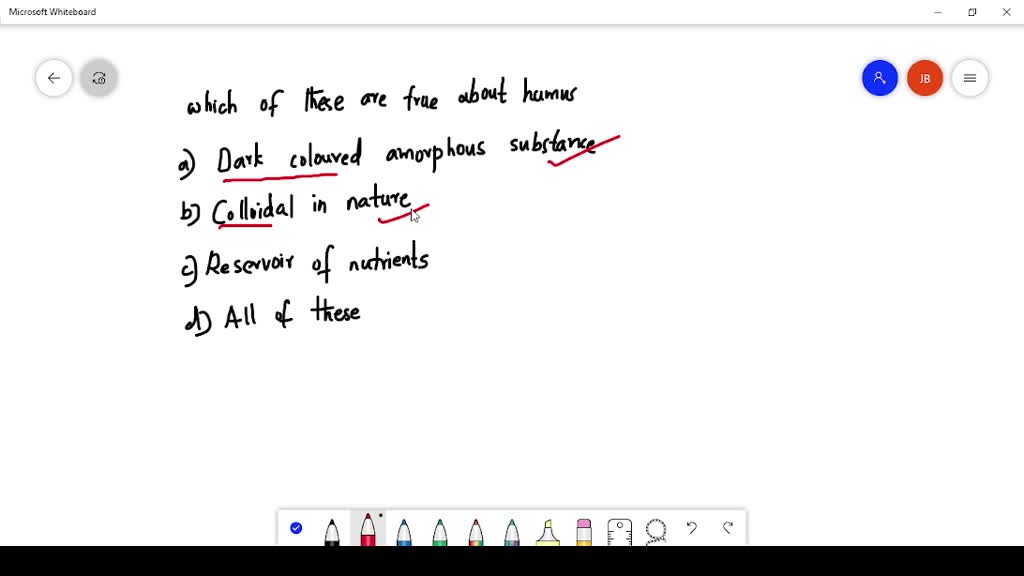 Microsoft Whiteboard
JB
which of these are true about humus
a) Dark coloured amorphous substance
b) Colloidal in nature
c) Reservoir of nutrients
d) All of these